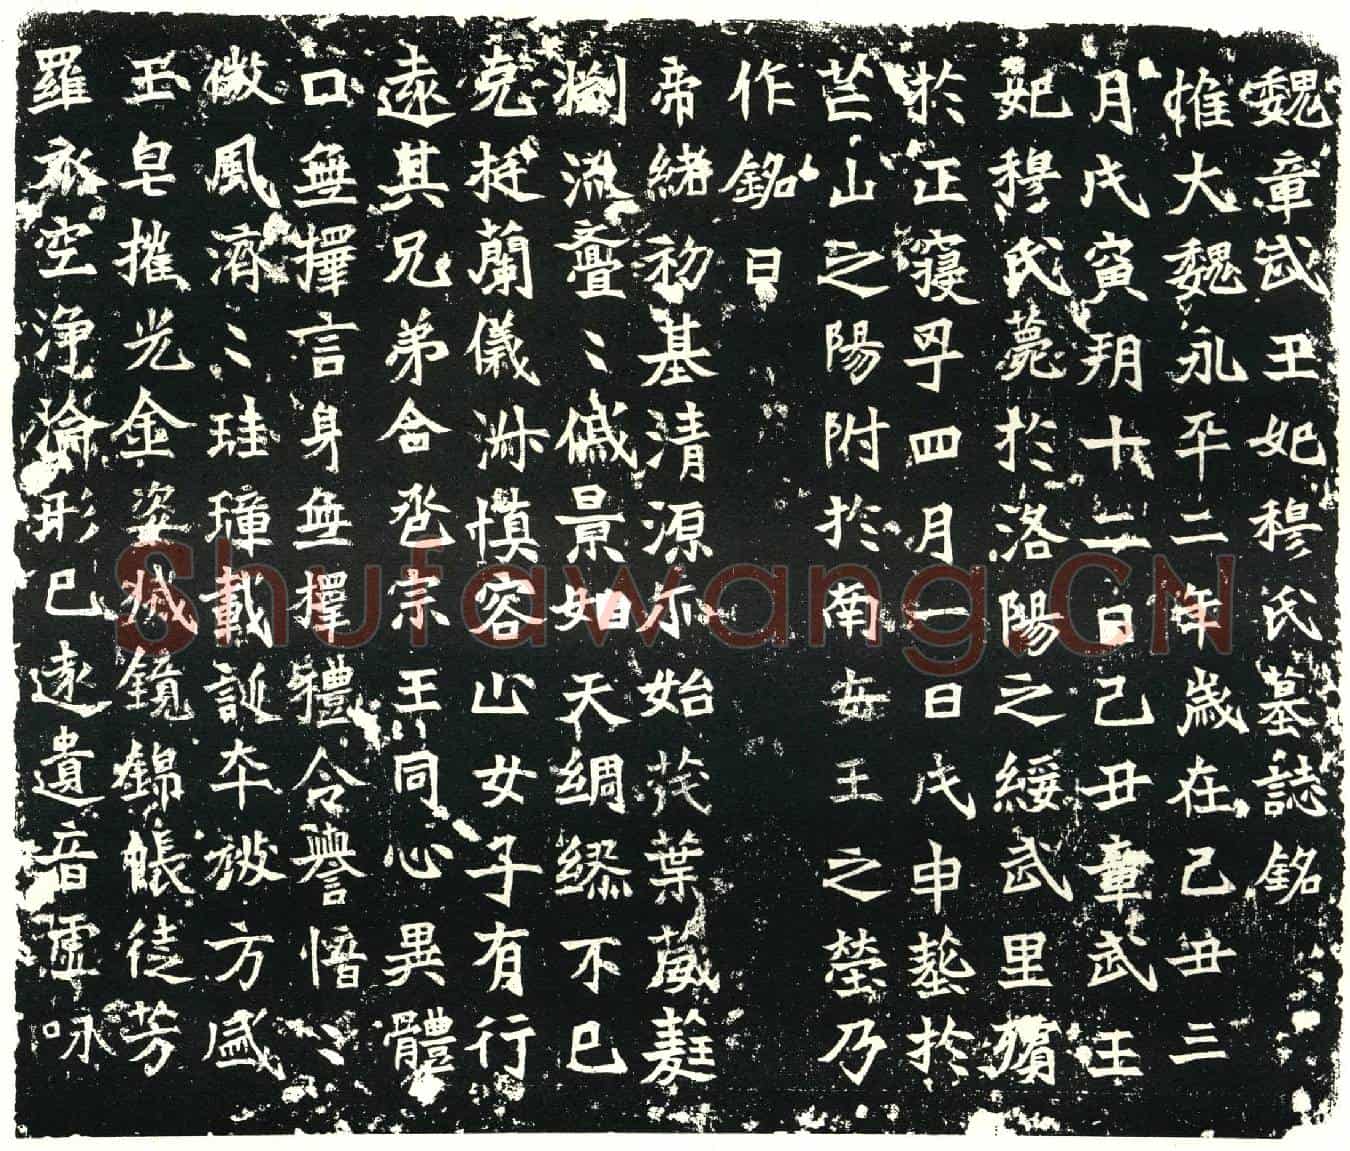 魏章武王妃穆氏墓誌銘
惟大魏永平二年歲在己丑三
月戊寅朔十二日己丑章武王
妃穆氏薨於洛陽之綏武里殯
於正寢粵四月一日戊申葬於
芒山之陽附於南安王之塋乃
作銘曰
帝緒初基清源亦始茂葉葳蕤
瀏流亹〻戚景如天綢繆不已
克挺蘭儀淋慎容止女子有行
遠其兄弟合卺宗王同心異體
口無擇言身無擇禮令譽愔〻
徽風濟〻珪璋載誕本披方盛
玉皂摧光金姿滅鏡錦帳徒芳
羅衣空淨淪形已遠遺音虛咏
Shufawang.CN